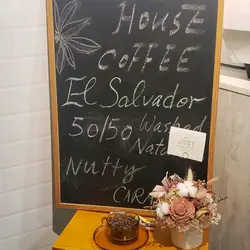 House
Coffee
El Salvador
50/50 Washed
Natu
Nutty
CAR